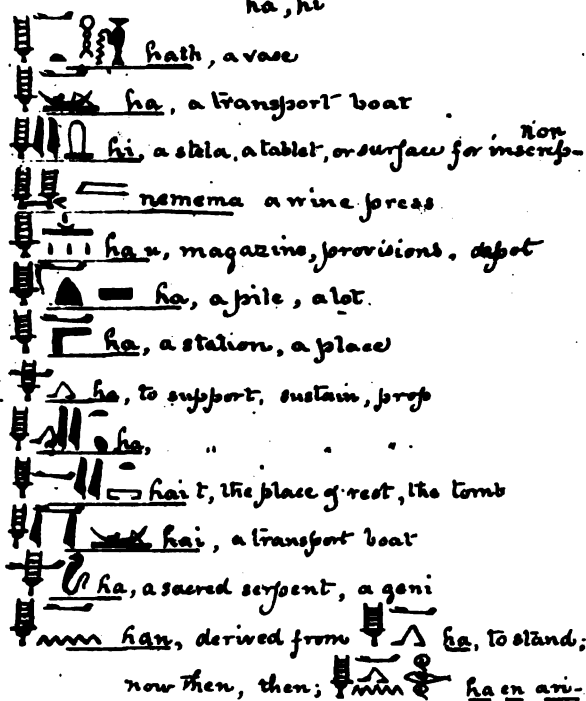 ha, hi
hath, a vase
ha, a transport boat
hi, a stela, a tablet, or surface for inscrip-tion
nemema a wine press
ha u, magazine, provisions. depot
ha, a pile, a lot.
ha, a station, a place
ha, to support, sustain, prop
ha, " " "
hait, the place of rest, the tomb
hai, a transport boat
ha, a sacred serpent, a geni
han, derived from ha, to stand;
now then, then; ha en ari-